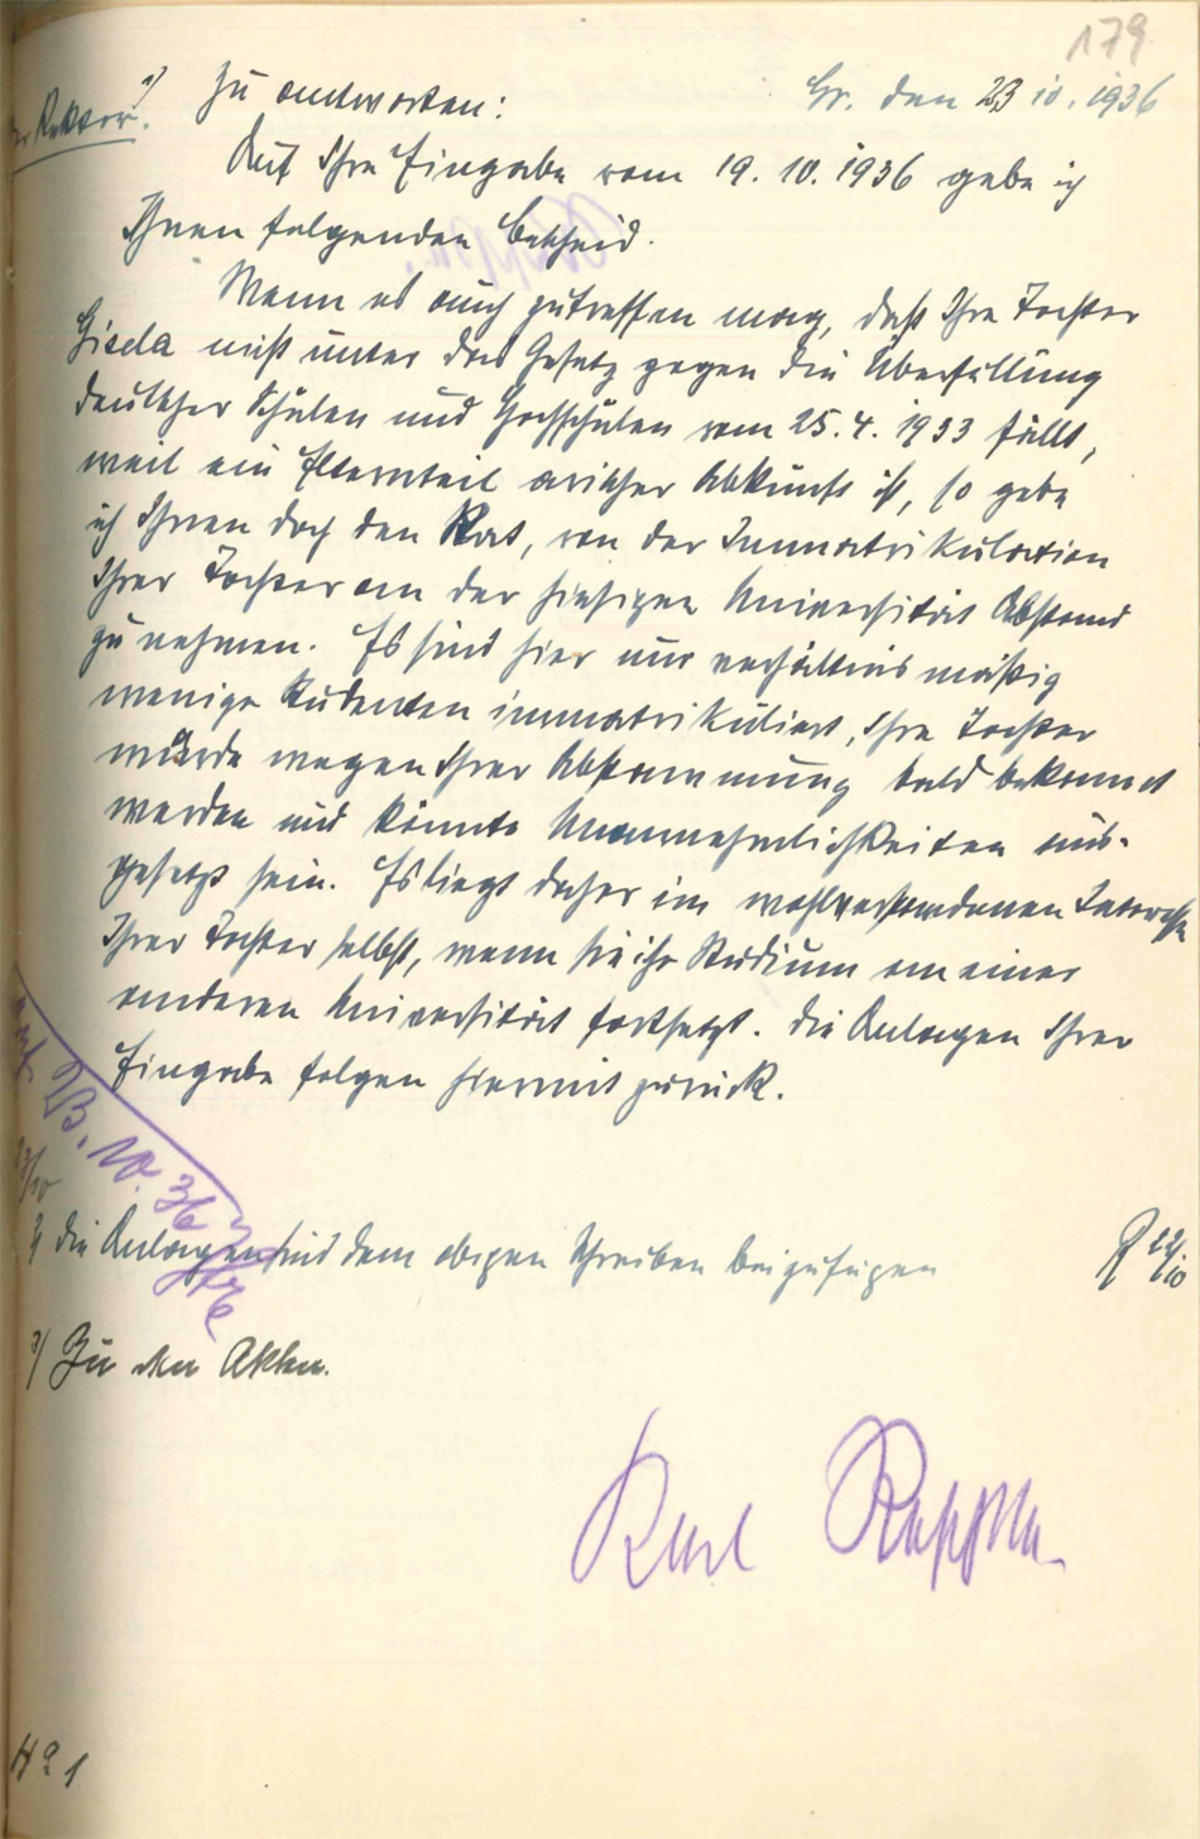 179
Gr. den 23 10. 1936
Der Rektor.
1) Zu antworten:
Auf Ihre Eingabe vom 19. 10. 1936 gebe ich
Ihnen folgenden Bescheid.
Wenn es auch zutreffen mag, daß Ihre Tochter
Gisela nicht unter das Gesetz gegen die Überfüllung
deutscher Schulen und Hochschulen vom 25. 4. 1933 fällt,
weil ein Elternteil arischer Abkunft ist, so gebe
ich Ihnen doch den Rat, von der Immatrikulation
Ihrer Tochter an der hiesigen Universität Abstand
zu nehmen. Es sind hier nur verhältnismäßig
wenige Studenten immatrikuliert, Ihre Tochter
würde wegen Ihrer Abstammung bald bekannt
werden und könnte Unannehmlichkeiten aus-
gesetzt sein. Es liegt daher im wohlverstandenen Interesse
Ihrer Tochter selbst, wenn sie ihr Studium an einer
anderen Universität fortsetzt. Die Anlagen Ihrer
Eingabe folgen hiermit zurück.
23/10
2) die Anlagen sind dem obigen Schreiben beizufügen
22/10
3) Zu den Akten.
Karl